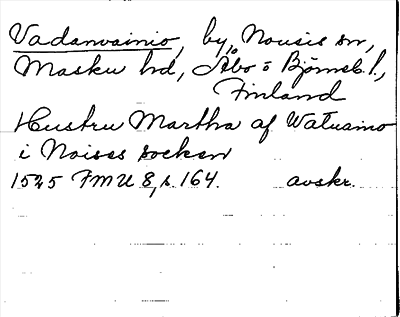 Vadanvainio, by, Nousis sn,
Masku hd, Åbo o Björneb. l.,
Finland
Hustru Martha af Watuaino
i Noises socken
1525 FMU 8, s. 164. avskr.